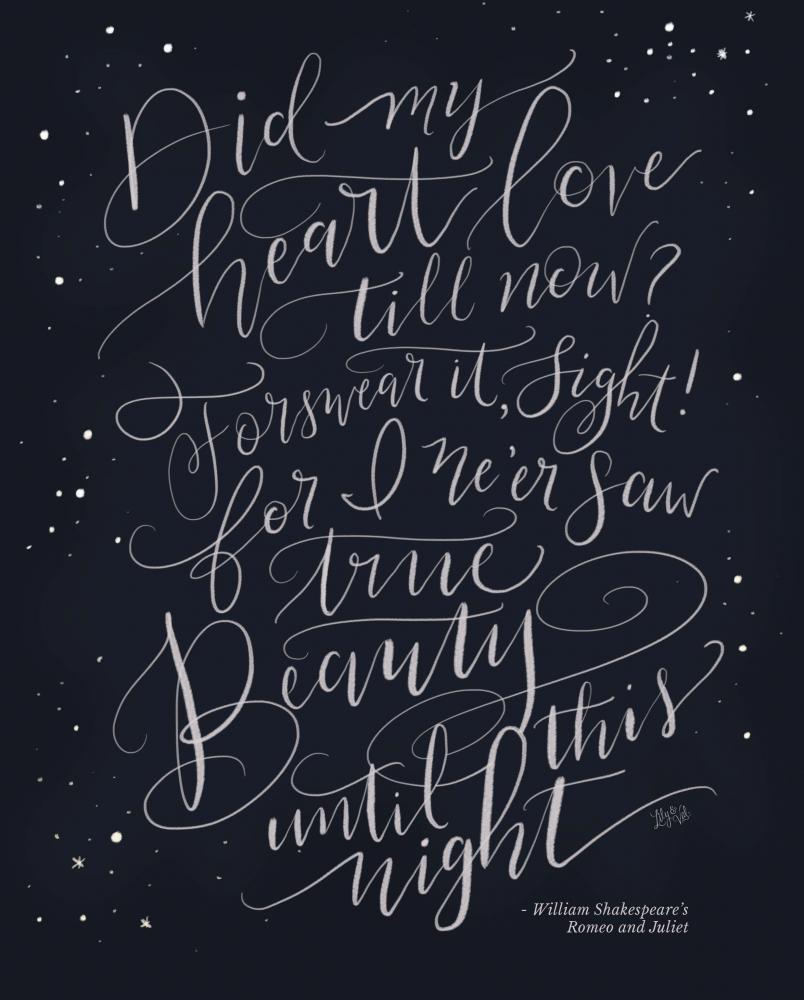 Did my
heart love
till now?
Forswear it, Sight!
for I ne'er saw
true
Beauty
until this
night
Lily & Val
- William Shakespeare's
Romeo and Juliet